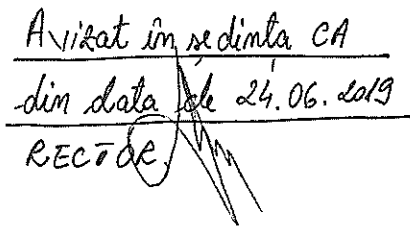 Avizat în ședința CA
din data de 24.06.2019
RECTOR